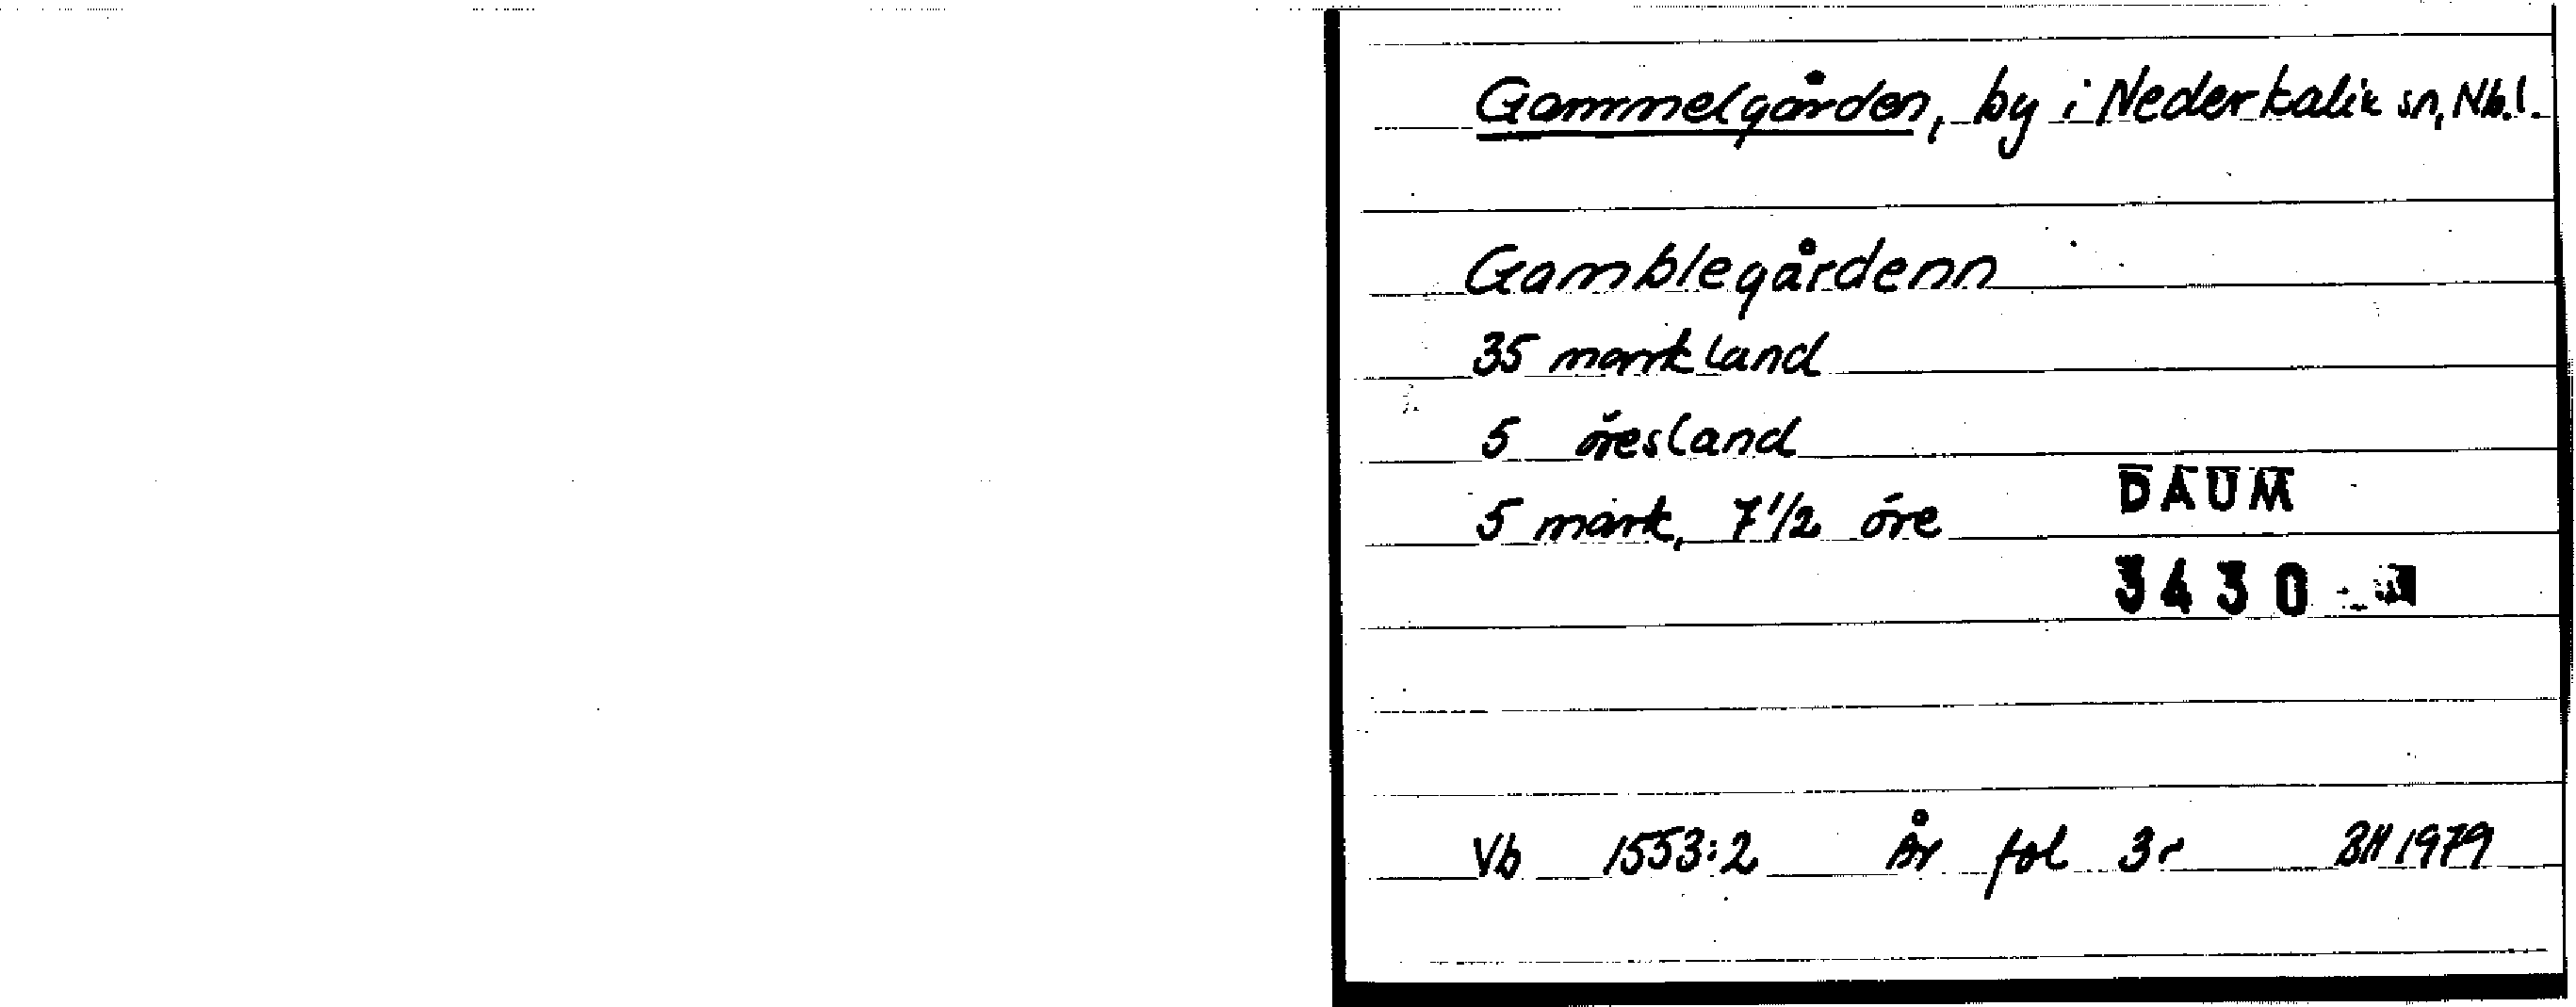 Gammelgården, by i Nederkalix sn, Nb.l.
Gamblegårdenn
35 markland
5 öresland
5 mark, 7 1/2 öre
DAUM
3430
Vb 1553:2 År fol 3r BH 1979